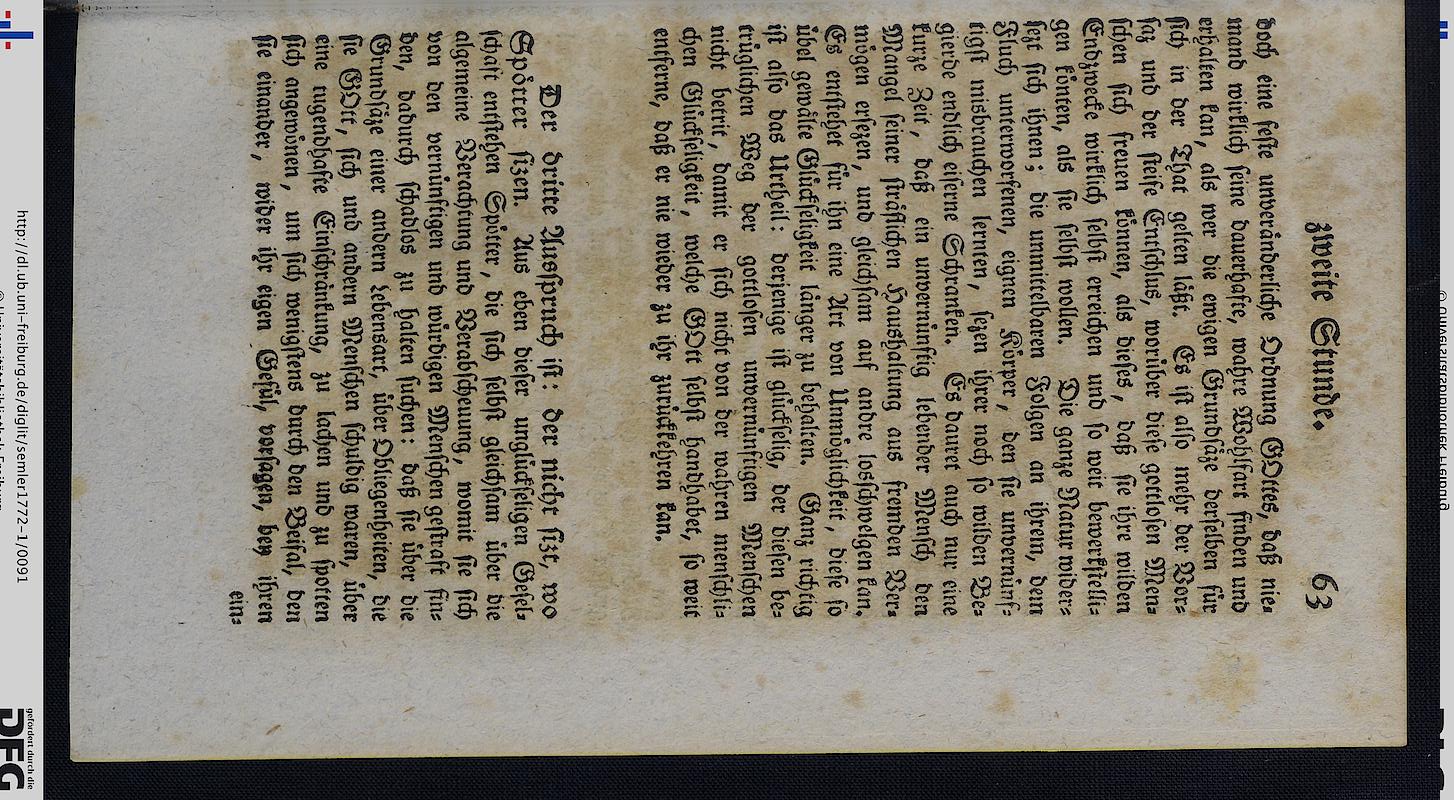 zweite Stunde. 63
doch eine feste unveränderliche Ordnung GOttes, daß nie-
mand wirklich seine dauerhafte, wahre Wohlfart finden und
erhalten kan, als wer die ewigen Grundsäze derselben für
sich in der That gelten läßt. Es ist also mehr der Vor-
saz und der steife Entschlus, worüber diese gottlosen Men-
schen sich freuen können, als dieses, daß sie ihre wilden
Endzwecke wirklich selbst erreichen und so weit bewerkstelli-
gen könten, als sie selbst wollen. Die ganze Natur wider-
sezt sich ihnen; die unmittelbaren Folgen an ihrem, dem
Fluch unterworfenen, eignen Körper, den sie unvernünf-
tigst misbrauchen lernten, sezen ihrer noch so wilden Be-
gierde endlich eiserne Schranken. Es dauret auch nur eine
kurze Zeit, daß ein unvernünftig lebender Mensch den
Mangel seiner sträflichen Haushaltung aus fremden Ver-
mögen ersezen, und gleichsam auf andre losschwelgen kan.
Es entstehet für ihn eine Art von Unmöglichkeit, diese so
übel gewälte Glückseligkeit länger zu behalten. Ganz richtig
ist also das Urtheil: derjenige ist glückselig, der diesen be-
trüglichen Weg der gottlosen unvernünftigen Menschen
nicht betrit, damit er sich nicht von der wahren menschli-
chen Glückseligkeit, welche GOtt selbst handhabet, so weit
entferne, daß er nie wieder zu ihr zurückkehren kan.
Der dritte Ausspruch ist: der nicht sizt, wo
Spötter sizen. Aus eben dieser unglückseligen Gesel-
schaft entstehen Spötter, die sich selbst gleichsam über die
algemeine Verachtung und Verabscheuung, womit sie sich
von den vernünftigen und würdigen Menschen gestraft fin-
den, dadurch schadlos zu halten suchen: daß sie über die
Grundsäze einer andern Lebensart, über Obliegenheiten, die
sie GOtt, sich und andern Menschen schuldig waren, über
eine tugendhafte Einschränkung, zu lachen und zu spotten
sich angewönen, um sich wenigstens durch den Beifal, den
sie einander, wider ihr eigen Gefül, versagen, bey ihren
ein-
http://dl.ub.uni-freiburg.de/diglit/semler1772-1/0091
gefördert durch die
DFG